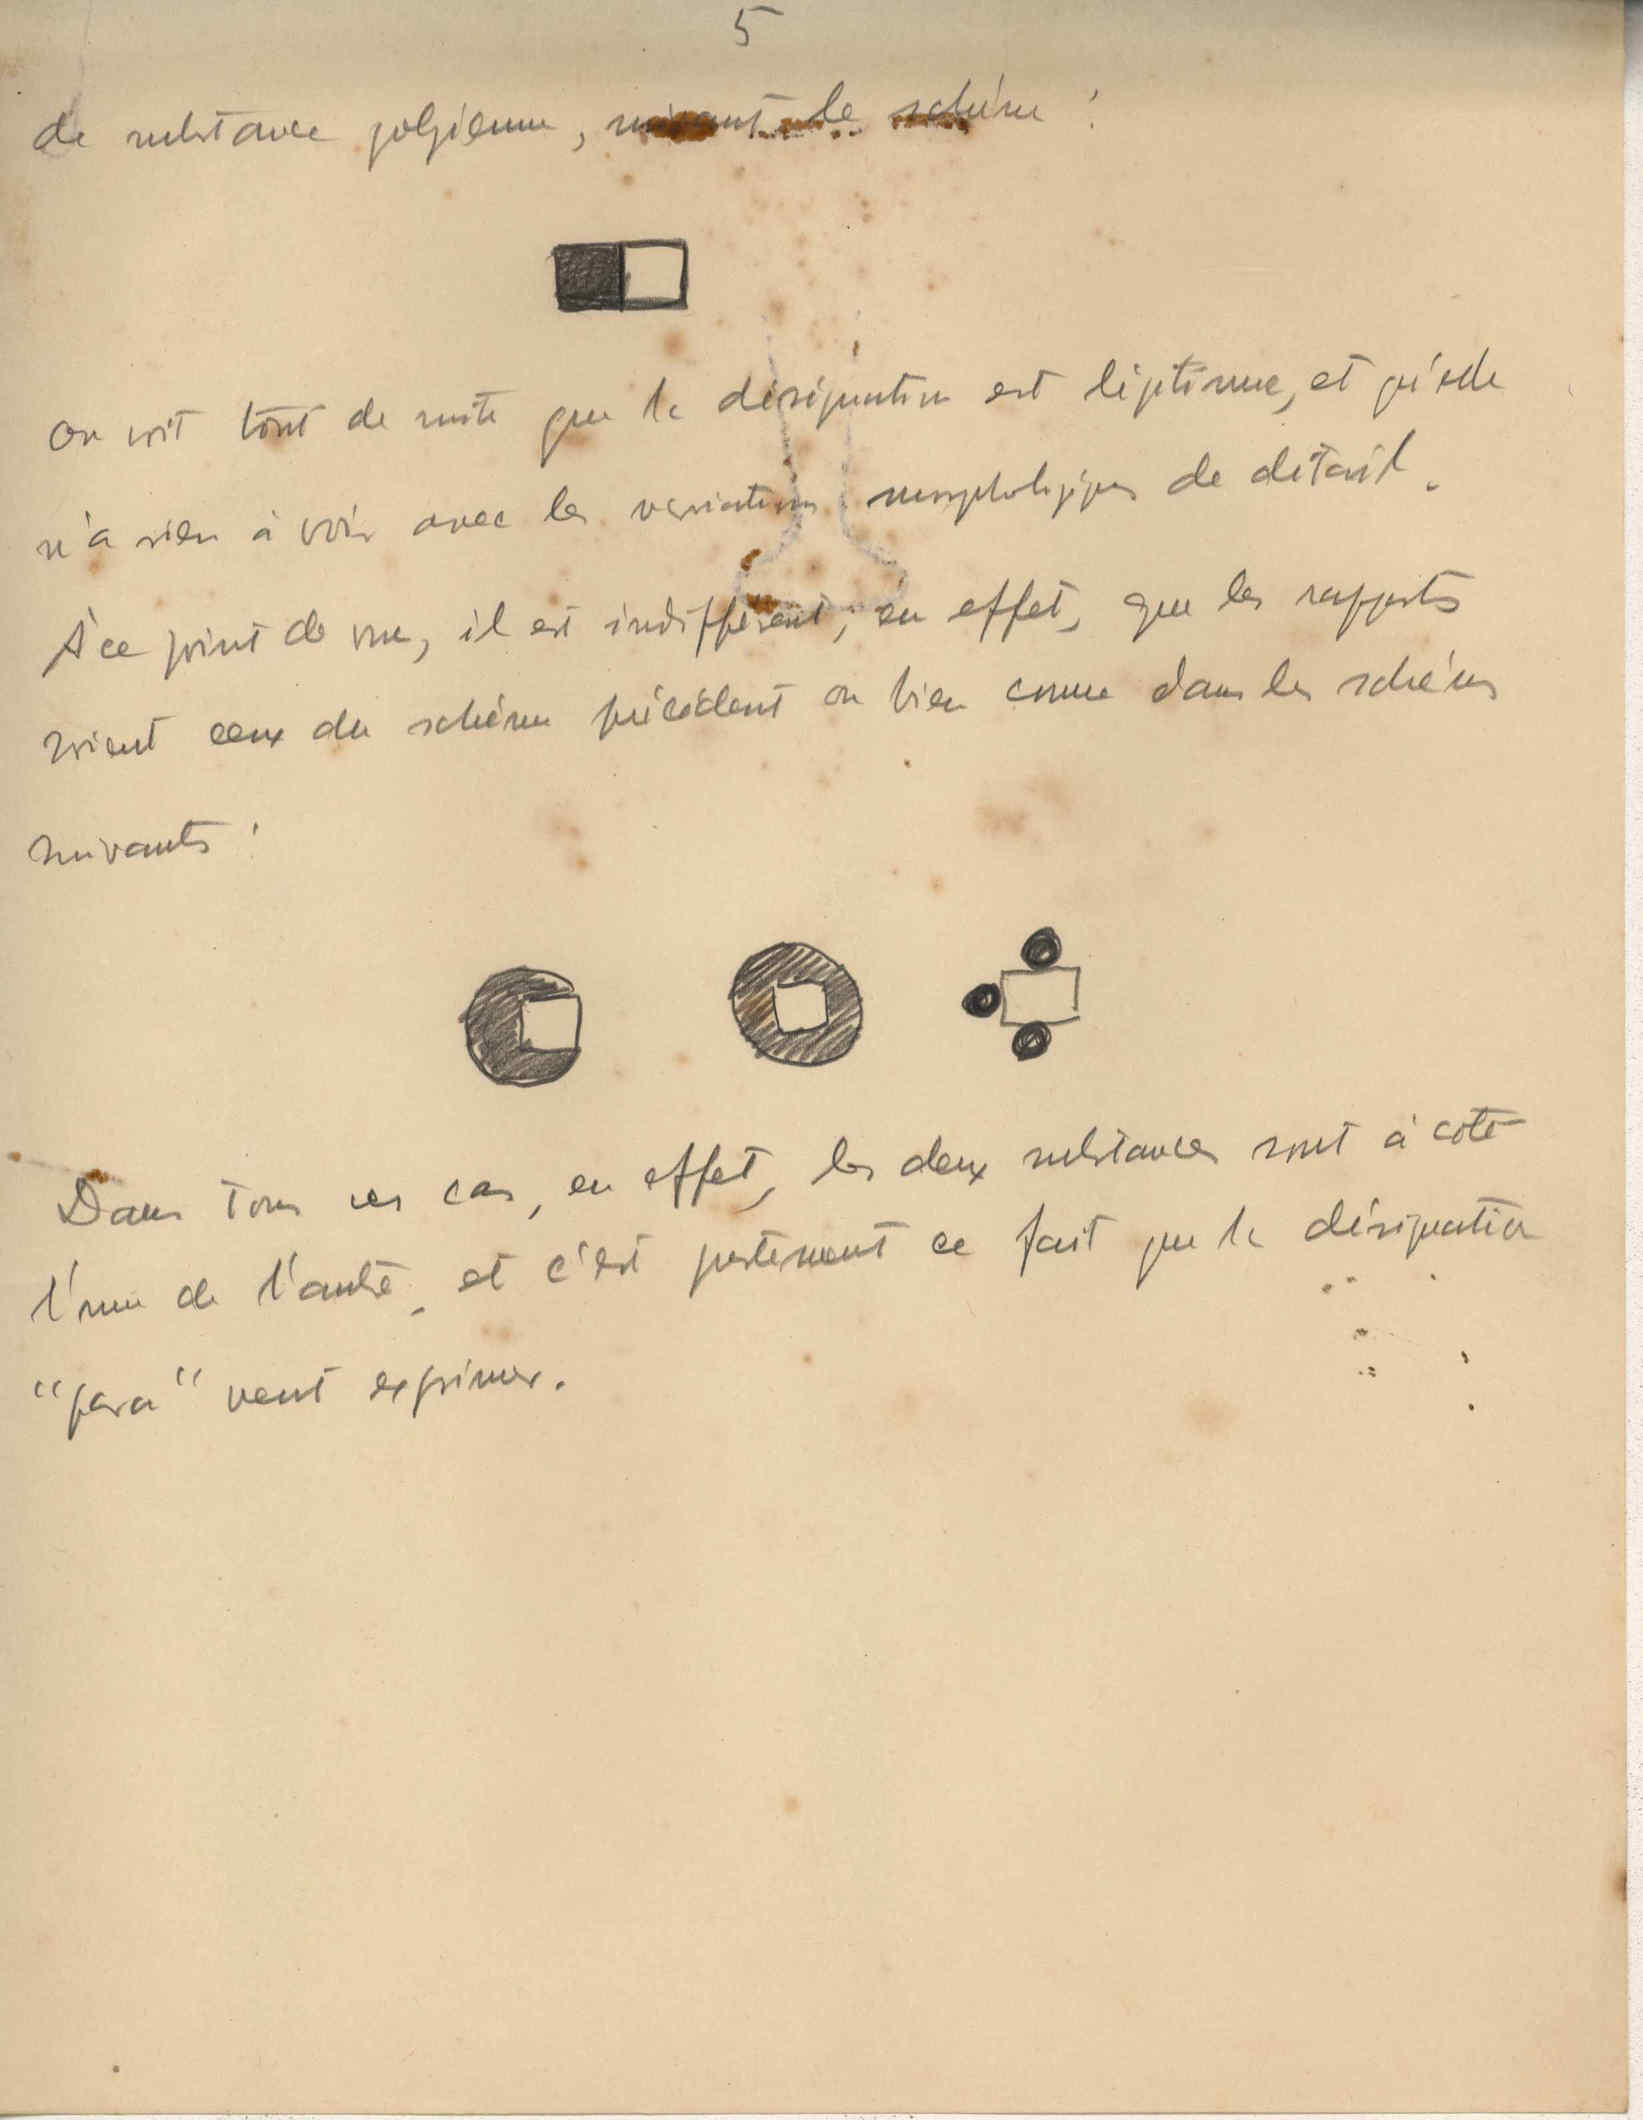 5
de substance golgienne, suivant le schéma :
On voit tout de suite que la désignation est légitime, et qu'elle
n'a rien à voir avec les variations morphologiques de détail.
À ce point de vue, il est indifférent, en effet, que les rapports
soient ceux du schéma précédent ou bien comme dans les schémas
suivants :
Dans tous ces cas, en effet, les deux substances sont à côté
l'une de l'autre, et c'est justement ce fait que la désignation
"para" veut exprimer.